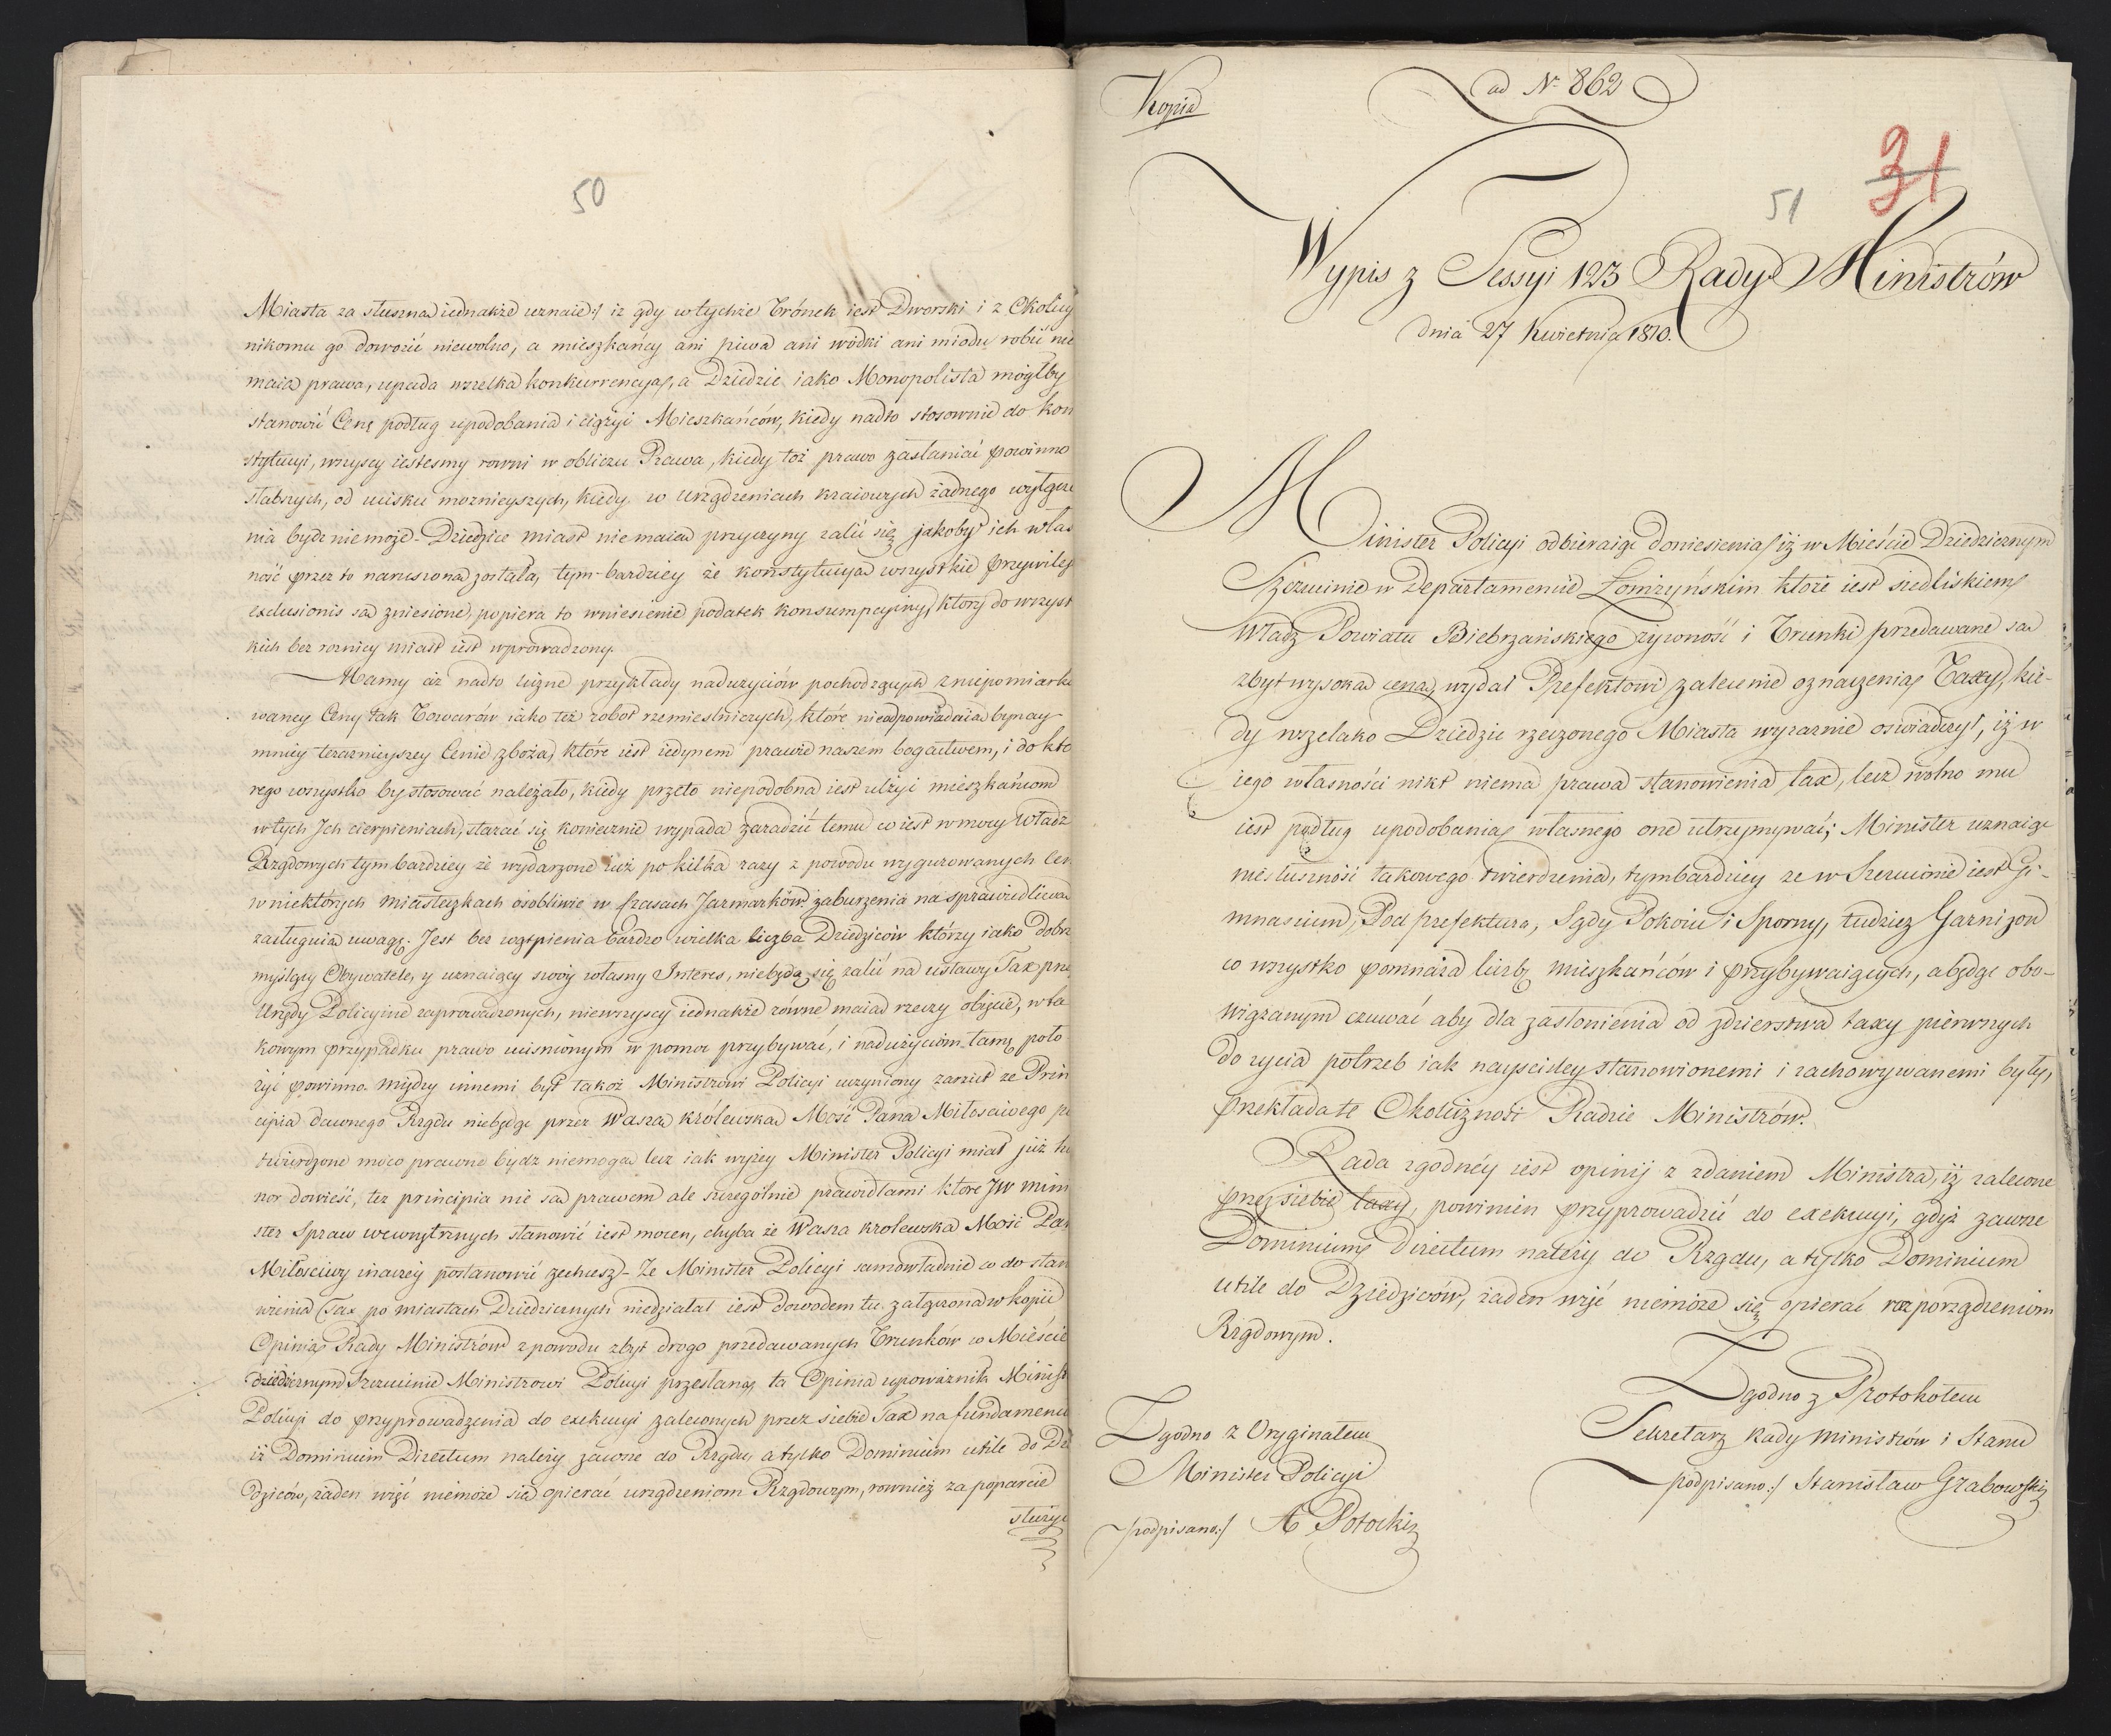 50
Miasta za słuszną iednakże uznaie:/ iż gdy w tychże Trónek iest Dworski i z Okolicy
nikomu go dowozić niewolno, a mieszkańcy ani piwa ani wódki ani miodu robić nie
maią prawa, upada wszelka konkurrencya, a Dziedzic iako Monopolista mógłby
stanowić Cenę podług upodobania i ciążyć Mieszkańców, kiedy nadto stosownie do kon
stytucyi, wszyscy iestesmy rowni w obliczu Prawa, kiedy toż prawo zasłaniać powinno
słabszych, od ucisku moznieyszych, kiedy w urządzeniach kraiowych żadnego wyłącze
nia bydź nie może - Dziedzice miast nie maią przyczyny żalić się jakoby ich włas
ność przez to naruszona została, tym-bardziey że konstytucya wszystkie przywileje
exclusionis są zniesione, popiera to wniesienie podatek konsumpcyiny, który do wszyst
kich bez roznicy miast iest wprowadzony.
Mamy aż nadto liczne przykłady nadużyciów pochodzących z niepomiarko
waney Ceny tak Towarów iako też robot rzemieslniczych, które nieodpowiadaią bynay
mniey terazniejszey Cenie zboża, które iest iedynem prawie naszem bogactwem, i do któ
rego wszystko bystosować należało, kiedy przeto niepodobna iest ulżyć mieszkańcom
w tych Ich cierpieniach, starać się koniecznie wypada zaradzić temu co iest w mocy Władz
Rządowych tym bardziey że wydarzone już po kilka razy z powodu wygurowanych Cen
w niektórych miasteczkach osobliwie w czasach Jarmarków zaburzenia na sprawiedliwą
zasługuią uwagę. Jest bez wątpienia bardzo wielka liczba Dziedziców którzy iako dobrze
myślący Obywatele, y uznaiący swóy własny Interes, niebędą się żalić na ustawy Tax prze
Urzędy Policyine zaprowadzonych, niewszyscy iednakże równe maią rzeczy obięcie, w ta
kowym przypadku prawo ucisnionym w pomoc przybywać, i nadużyciom tamę poło
żyć powinno. między innemi był takoż Ministrowi Policyi uczyniony zarzut że Prin
cipia dawnego Rządu niebędąc przez Waszą królewską Mość Pana Miłościwego po
twierdzone moco prawne bydz niemogą lecz iak wyżey Minister Policyi miał już ho
nor dowieść, też principia nie są prawem ale szczególnie prawidłami które JW mini
ster Spraw wewnętrznych stanowić iest mocen, chyba że Wasza krolewska Mość Pan
Miłościwy inaczey postanowić zechcesz - Że Minister Policyi samowładnie co do stan
wienia Tax po miastach Dziedzicznych niedziałał iest dowodem tu załączona w kopii
Opinia Rady Ministrów z powodu zbyt drogo przedawanych Trunków w Mieście
dziedzicznym Szczucinie Ministrowi Policyi przesłana, ta Opinia upoważnik Minist
Policyi do przyprowadzenia do exekucyi zaleconych przez siebie Tax na fundamencie
iż Dominium Directum należy zawsze do Rządu, a tylko Dominium utile do Dzie
dziców, żaden więc niemoże się opierać urządzeniom Rządowym, rownież za poparcie
służyć
Kopia
ad Nr 862
31
51
Wypis z Sessyi 123 Rady Ministrów
dnia 27 Kwietnia 1810.
Minister Policyi odbieraiąc doniesienia, iż w Mieście Dziedzicznym
Szczucinie w Departamencie Łomżyńskim które iest siedliskiem
Władz Powiatu Biebrzańskiego żywność i Trunki przedawane są
zbyt wysoką ceną, wydał Prefektowi zalecenie oznaczenia Taxy, kie-
dy wszelako Dziedzic rzeczonego Miasta wyraznie oświadczył, iż w
iego własności nikt niema prawa stanowienia tax, lecz wolno mu
iest podług upodobania własnego one utrzymywać; Minister uznaiąc
niesłusznośi takowego twierdzenia, tymbardziey że w Szczucinie iest Gi-
mnasium, Pod prefektura, Sądy Pokoiu i Sporny, tudzież Garnizon
co wszystko pomnaża liczbę mieszkańców i przybywaiących, a będąc obo-
wiązanym czuwać aby dla zasłonienia od zdzierstwa taxy pierwszych
do życia potrzeb iak nayściśley stanowionemi i zachowywanemi były,
przekłada te Okoliczności Radzie Ministrów.
Rada zgodnéy iest opinij z zdaniem Ministra, iż zalecone
przez siebie taxy, powinien przyprowadzić do exekucyi, gdyż zawsze
Dominium directum należy do Rządu, a tylko Dominium
utile do Dziedziców, żaden więc niemoże się opierać rozporządzeniom
Rządowym.
Zgodno z Protokołem
Sekretarz Rady Ministrów i Stanu
/podpisano:/ Stanisław Grabowski
Zgodno z Oryginałem
Minister Policyi
/podpisano:/ A Potocki